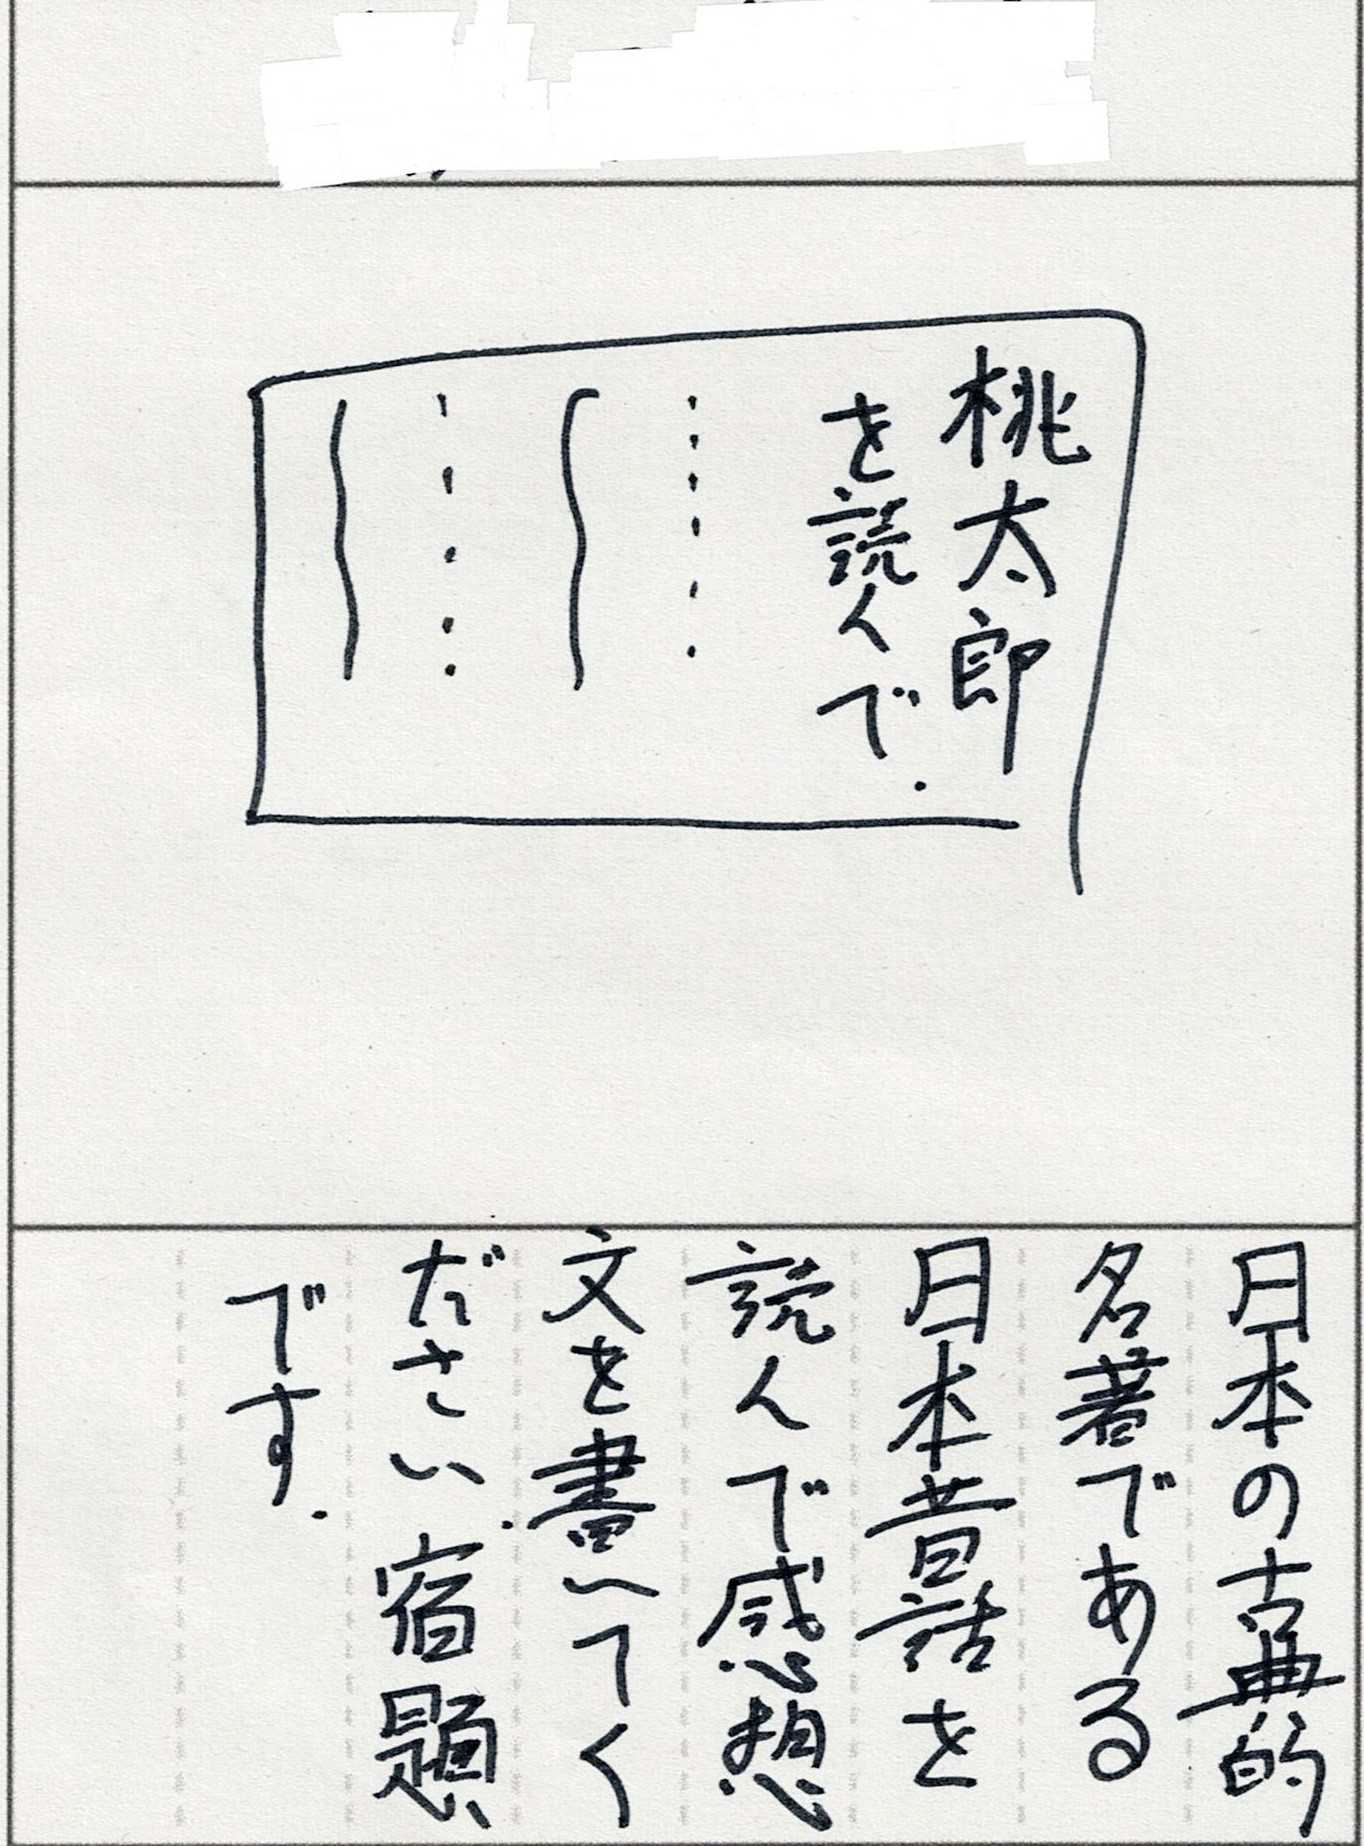 桃太郎
を読んで.
日本の古典的
名著である
日本昔話を
読んで感想
文を書いてく
ださい.宿題
です.